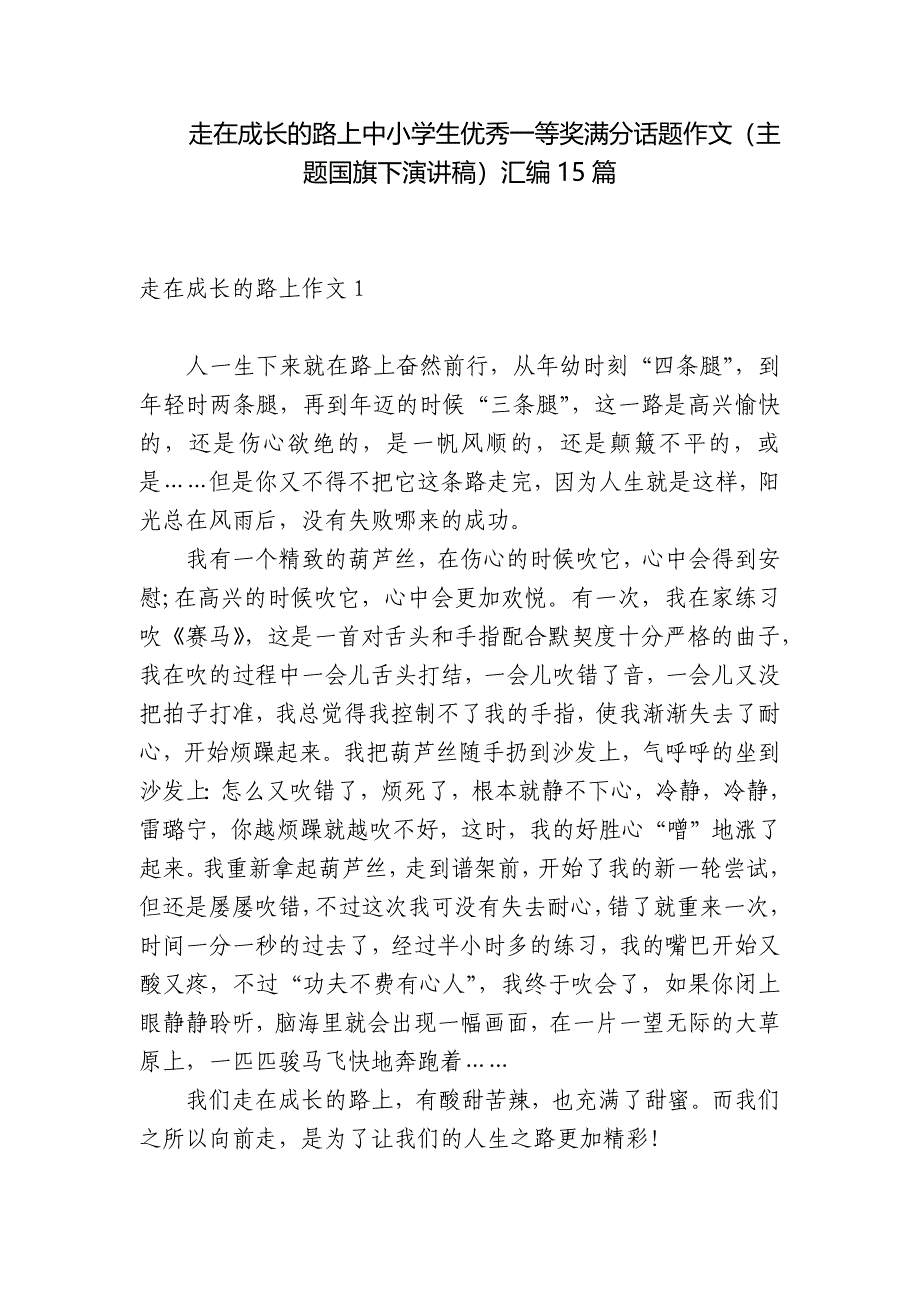 走在成长的路上中小学生优秀一等奖满分话题作文（主
题国旗下演讲稿）汇编 15 篇
走在成长的路上作文 1
人一生下来就在路上奋然前行，从年幼时刻“四条腿”，到
年轻时两条腿，再到年迈的时候“三条腿”，这一路是高兴愉快
的，还是伤心欲绝的，是一帆风顺的，还是颠簸不平的，或
是……但是你又不得不把它这条路走完，因为人生就是这样，阳
光总在风雨后，没有失败哪来的成功。
我有一个精致的葫芦丝，在伤心的时候吹它，心中会得到安
慰；在高兴的时候吹它，心中会更加欢悦。有一次，我在家练习
吹《赛马》，这是一首对舌头和手指配合默契度十分严格的曲子，
我在吹的过程中一会儿舌头打结，一会儿吹错了音，一会儿又没
把拍子打准，我总觉得我控制不了我的手指，使我渐渐失去了耐
心，开始烦躁起来。我把葫芦丝随手扔到沙发上，气呼呼的坐到
沙发上：怎么又吹错了，烦死了，根本就静不下心，冷静，冷静，
雷璐宁，你越烦躁就越吹不好，这时，我的好胜心“噌”地涨了
起来。我重新拿起葫芦丝，走到谱架前，开始了我的新一轮尝试，
但还是屡屡吹错，不过这次我可没有失去耐心，错了就重来一次，
时间一分一秒的过去了，经过半小时多的练习，我的嘴巴开始又
酸又疼，不过“功夫不费有心人”，我终于吹会了，如果你闭上
眼静静聆听，脑海里就会出现一幅画面，在一片一望无际的大草
原上，一匹匹骏马飞快地奔跑着……
我们走在成长的路上，有酸甜苦辣，也充满了甜蜜。而我们
之所以向前走，是为了让我们的人生之路更加精彩！